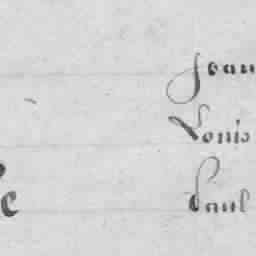 Jean
Louis
Paul